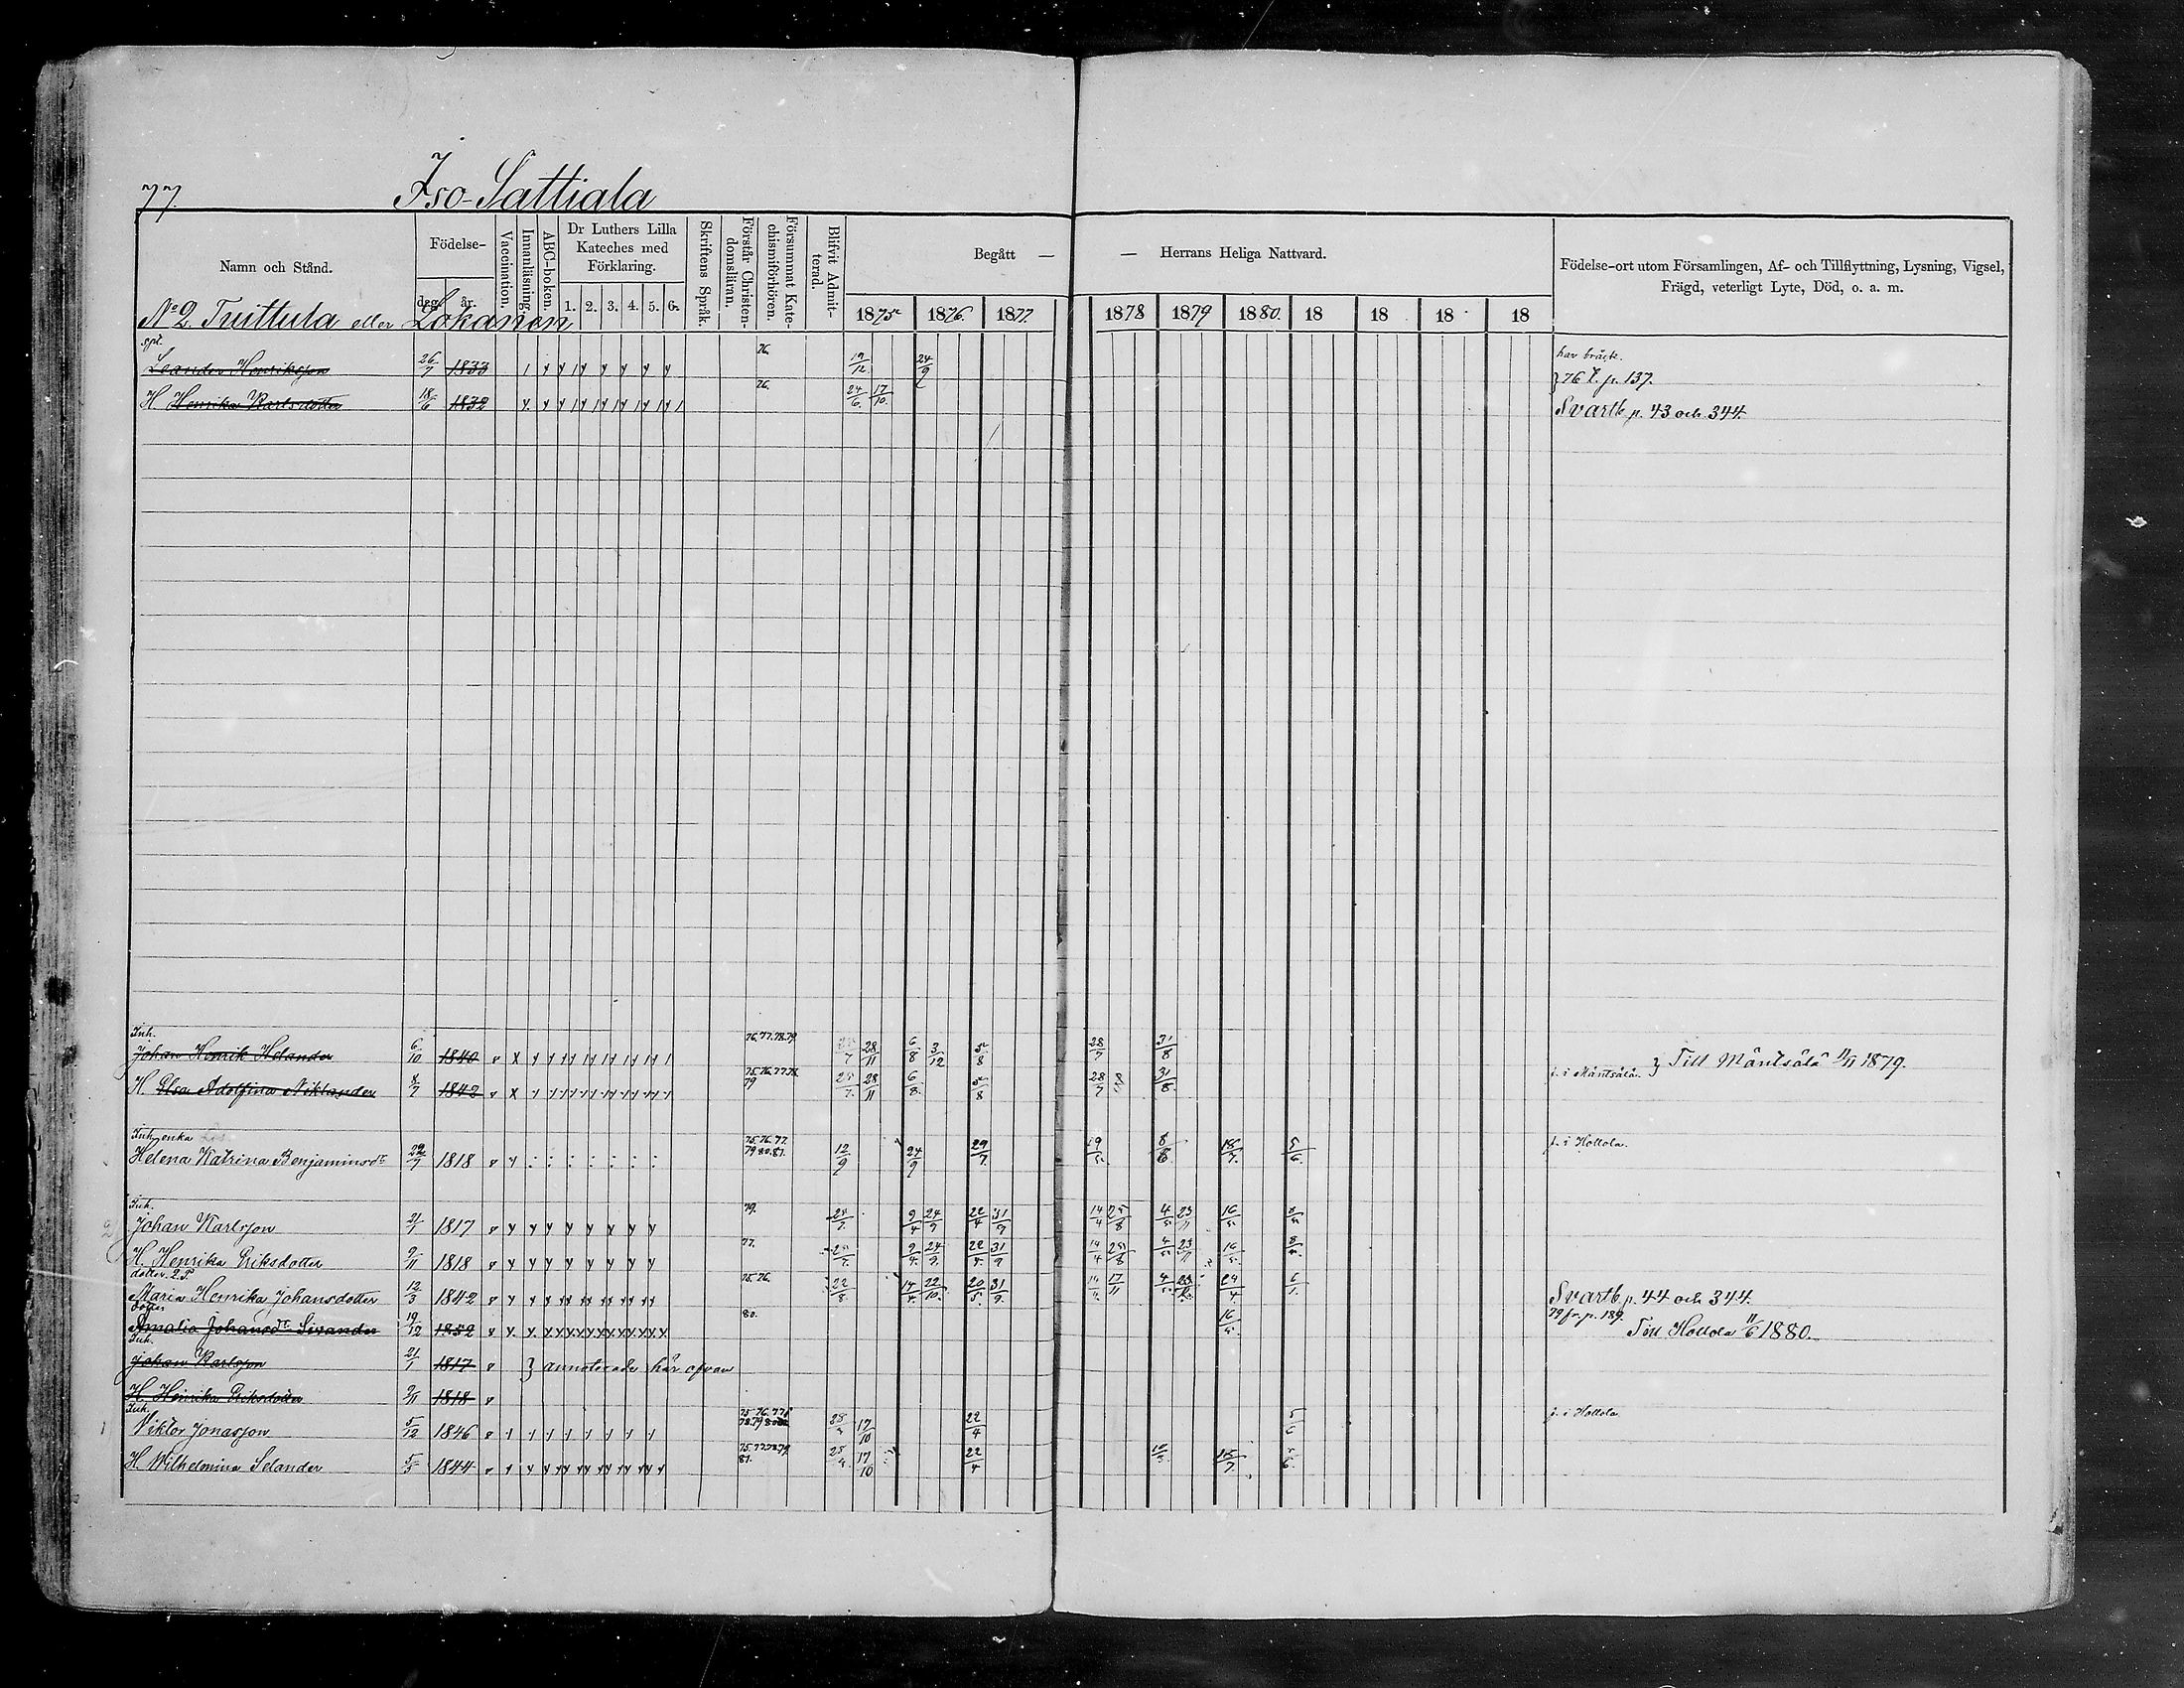 77.
Iso-Sattiala
Namn och Stånd.
Födelse-
dag. år.
Vaccination.
Innanläsning.
ABC-boken.
Dr Luthers Lilla Kateches med Förklaring.
1. 2. 3. 4. 5. 6.
Skriftens Språk.
Förstår Christendomsläran.
Försummat Katechismiförhören.
Blifvit Admitterad.
Begått — — Herrans Heliga Nattvard.
1875 1876. 1877. 1878 1879 1880. 18 18 18 18
Födelse-ort utom Församlingen, Af- och Tillflyttning, Lysning, Vigsel,
Frägd, veterligt Lyte, Död, o. a. m.
No 2 Tuittula eller Lokanen
Leander Henriksson 26/7 1833 76. 19/12 24/9 har bråck.
} 76 t. p. 137.
H Henrika Karlsdotter 18/6 1832 76. 24/6. 17/10. Svartb. p. 43 och 344.
Inh.
Johan Henrik Helander 6/10 1840 76.77.78.79. 28/11 6/8 3/12 5/8 28/7 31/8
H. Elsa Adolfina Niklander 8/7 1842 75.76.77.78. 79 28/11 6/8. 5/8 28/7 31/8. f. i Mäntsälä. } Till Mäntsälä 11/11 1879.
Inh. enka
Helena Katrina Benjaminsdr 29/7 1818 75.76.77. 79.80.81. 12/9 24/9 29/7. 19/5. 8/6. 18/7. 5/6. f. i Hollola.
Inh.
Johan Karlsson 21/1 1817 79. 24/7. 9/4 24/9 22/4 31/9 14/4 25/8 4/5 23/11 16/5.
H. Henrika Eriksdotter 9/11 1818 77. 25/7. 9/4. 24/9. 22/4. 31/9 14/4 25/8 4/5 23/11 16/5.
dotter. 2.P.
Maria Henrika Johansdotter 12/3 1842 75.76. 22/8. 14/4. 22/10. 20/5. 31/9. 17/11 4/5. 24/4. Svartb. p. 44 och 344.
dotter
Amalia Johansdr Sivander 19/12 1852 80. 16/5. 79 fr. p. 189. Till Hollola 11/6 1880.
Inh.
Johan Karlsson 21/1 1817 } annoterade här ofvan
H. Henrika Eriksdotter 9/11 1818
Inh.
Viktor Jonasson 5/12 1846 75.76.77. 78.79 17/10 22/4 f. i Hollola
H. Wilhelmina Selander 5/5 1844 75.77.78.79. 81. 17/10 22/4 18/7.